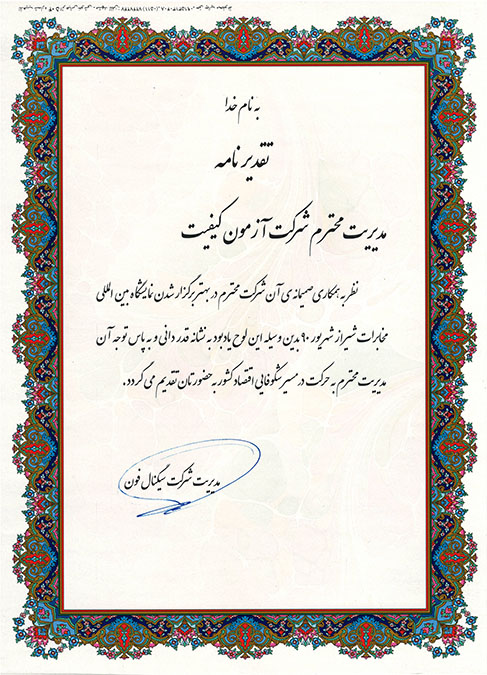 به نام خدا
تقدیر نامه
مدیریت محترم شرکت آزمون کیفیت
نظر به همکاری صمیمانه ی آن شرکت محترم در بهتر برگزار شدن نمایشگاه بین المللی
مخابرات شیراز شهریور ۹۰ بدین وسیله این لوح یادبود به نشانه قدردانی و به پاس توجه آن
مدیریت محترم به حرکت در مسیر شکوفایی اقتصاد کشور به حضورتان تقدیم می گردد.
مدیریت شرکت سیگنال فون